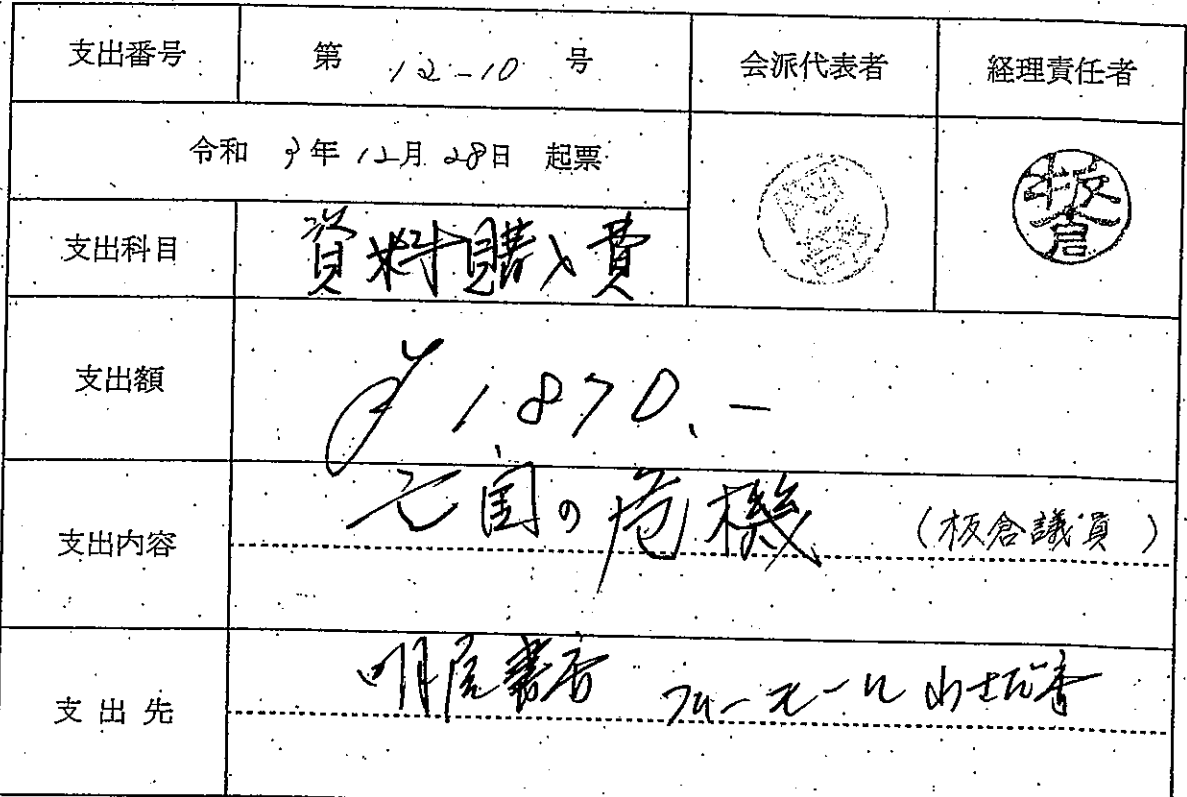 支出番号 第 12-10 号 会派代表者 経理責任者
令和 3年 12月 28日 起票
板倉
支出科目 資料購入費
支出額 ¥1870.-
支出内容 の危機 (板倉議員)
支出先 明屋書店